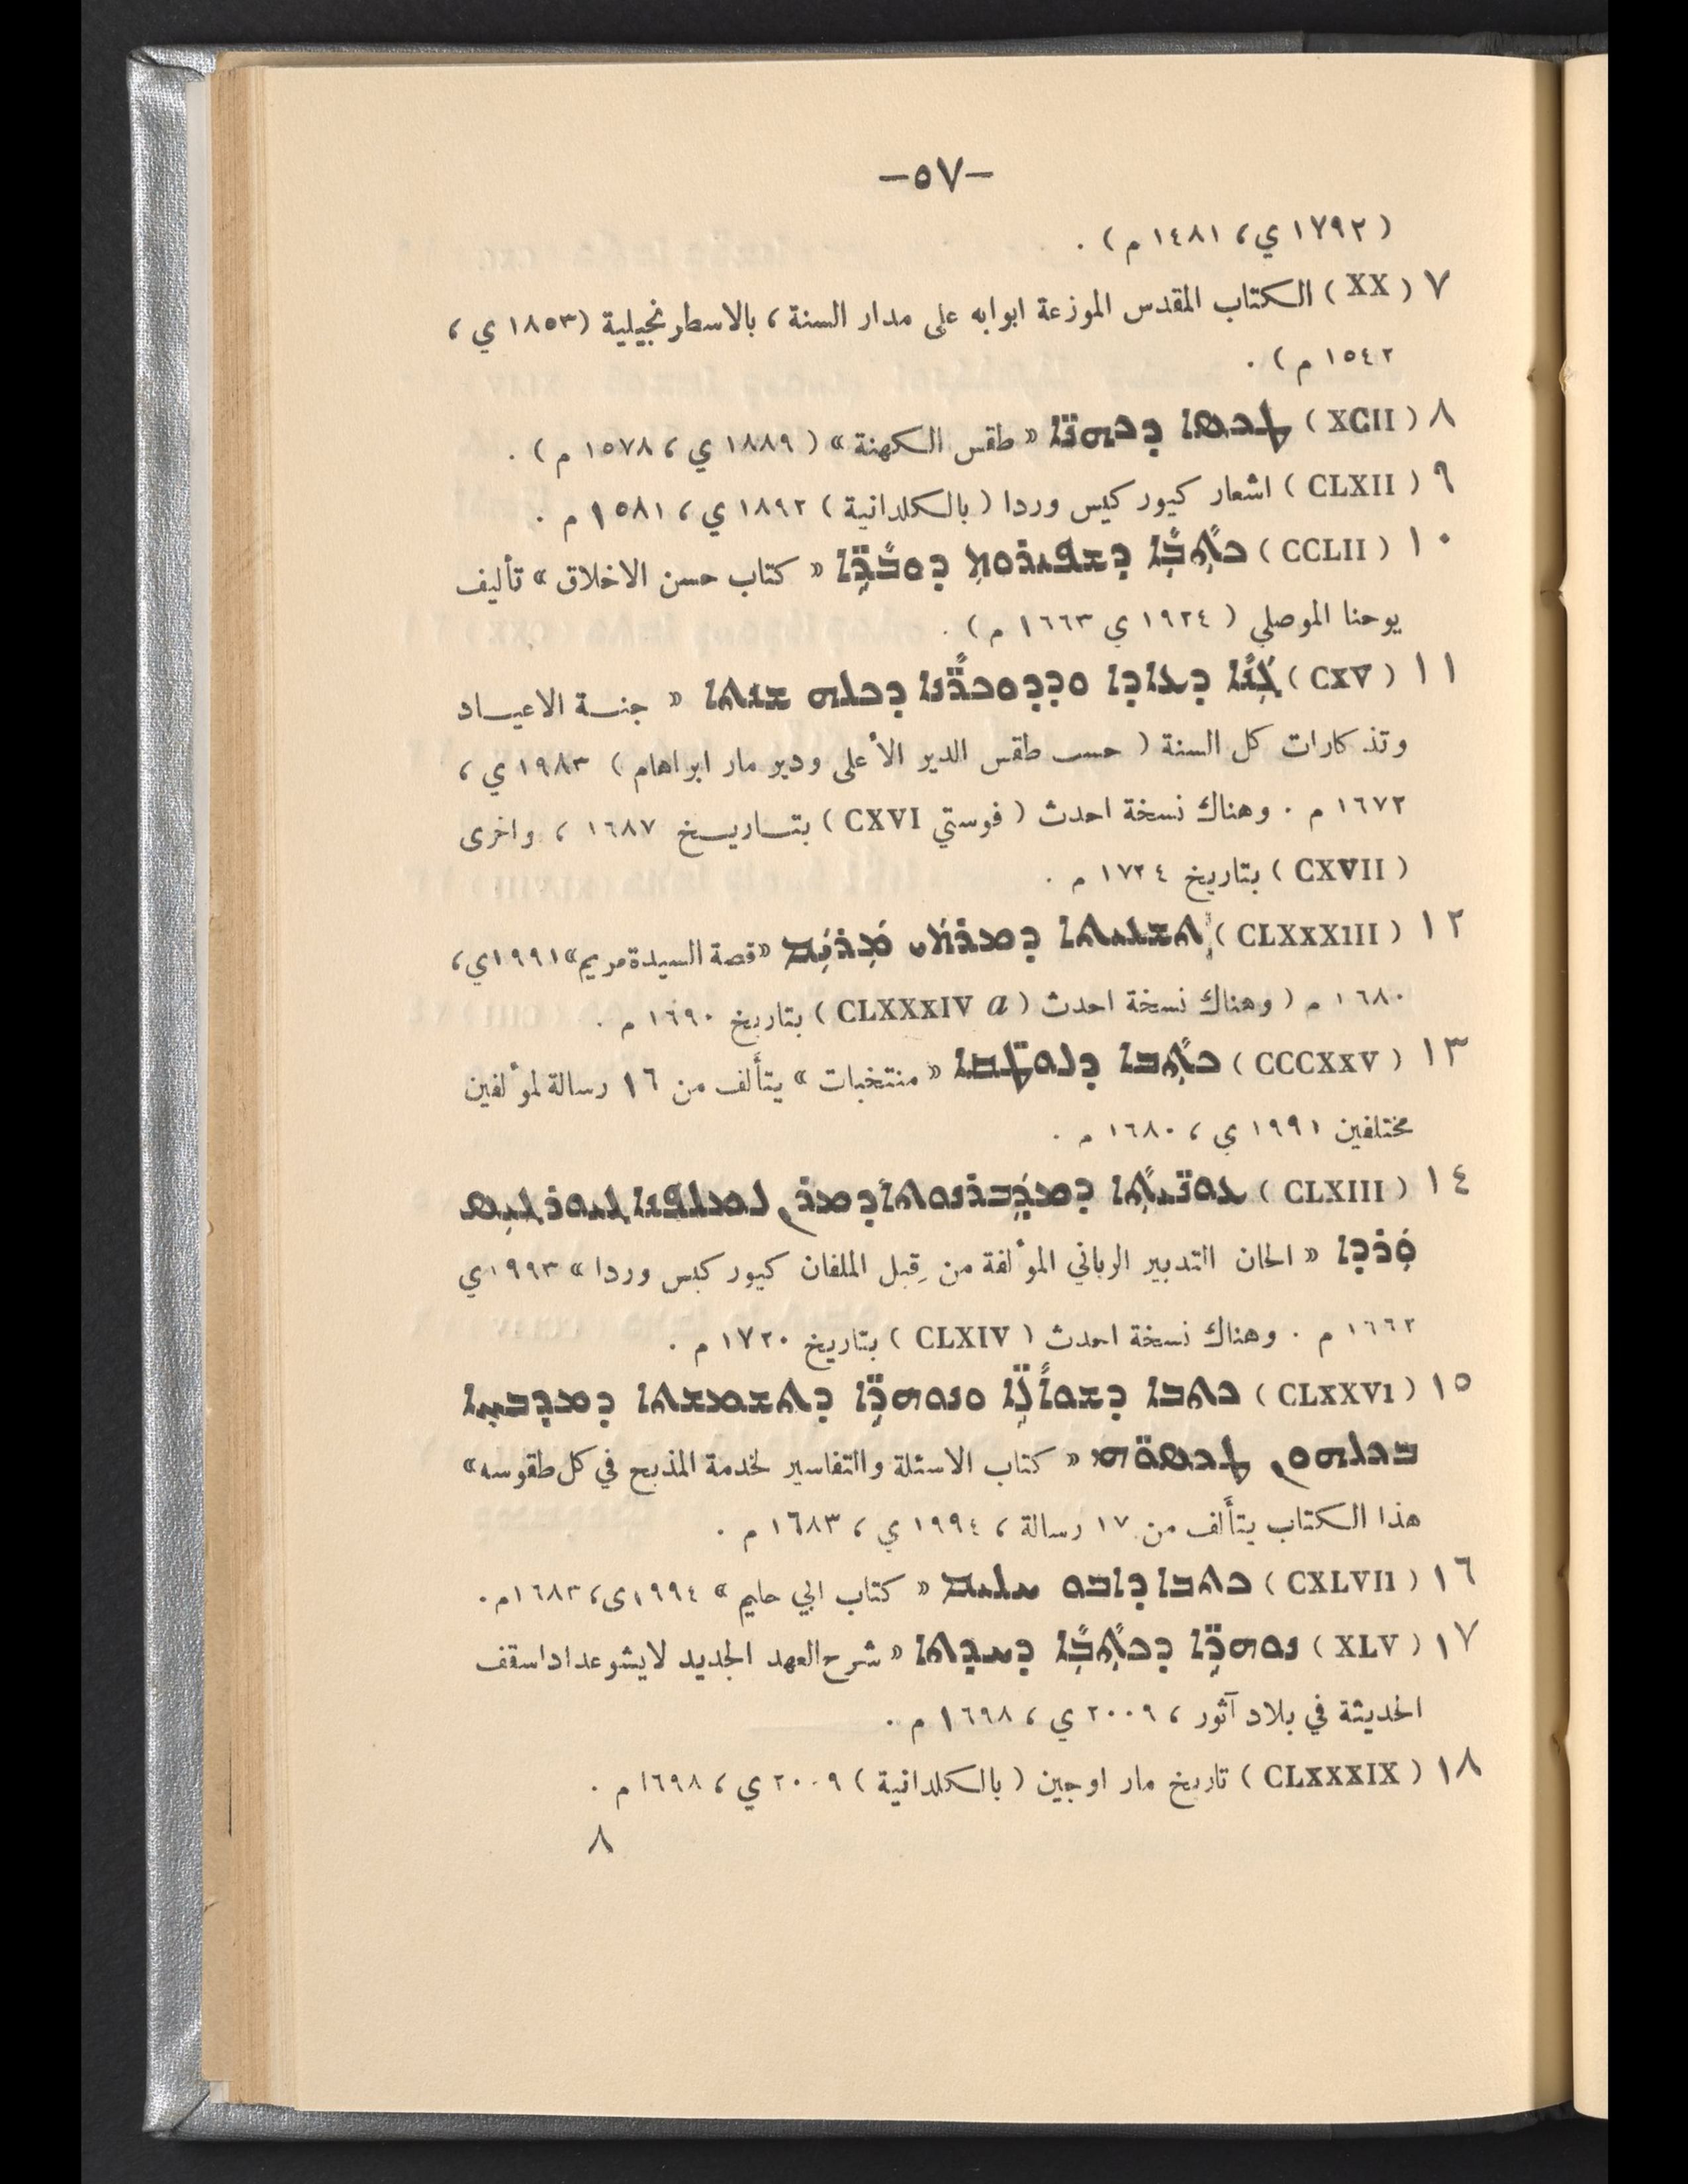 —٥٧—
( ١٧٩٢ ي ، ١٤٨١ م ) .
٧ ( XX ) الكتاب المقدس الموزعة ابوابه على مدار السنة ، بالاسطرنجيلية (١٨٥٣ ي ،
١٥٤٢ م ) .
٨ ( XCII ) ܛܟܣܐ ܕܟܗܢ̈ܐ « طقس الكهنة » ( ١٨٨٩ ي ، ١٥٧٨ م ) .
٩ ( CLXII ) اشعار كيوركيس وردا ( بالكلدانية ) ١٨٩٢ ي ، ١٥٨١ م .
١٠ ( CCLII ) ܟܬܒܐ ܕܫܦܝܪܘܬ ܕܘܒܪ̈ܐ « كتاب حسن الاخلاق » تأليف
يوحنا الموصلي ( ١٩٢٤ ي ١٦٦٣ م ) .
١١ ( CXV ) ܓܢܬܐ ܕܥܐܕܐ ܘܕܕܘܟܪ̈ܢܐ ܕܟܠܗ ܫܢܬܐ « جنـة الاعيـاد
وتذكارات كل السنة ( حسب طقس الدير الأعلى ودير مار ابراهام ) ١٩٨٣ ي ،
١٦٧٢ م . وهناك نسخة احدث ( فوستي CXVI ) بتـاريـخ ١٦٨٧ ، واخرى
( CXVII ) بتاريخ ١٧٢٤ م .
١٢ ( CLXXXIII ) ܬܫܥܝܬܐ ܕܡܪܬܝ ܡܪܝܡ «قصة السيدة مريم» ١٩٩١ي،
١٦٨٠ م ( وهناك نسخة احدث ( CLXXXIV a ) بتاريخ ١٦٩٠ م .
١٣ ( CCCXXV ) ܟܬܒܐ ܕܠܘܩ̈ܛܐ « منتخبات » يتألف من ١٦ رسالة لمؤلفين
مختلفين ١٩٩١ ي ، ١٦٨٠ م .
١٤ ( CLXIII ) ܥܘܢ̈ܝܬܐ ܕܡܕܒܪܢܘܬܐ ܕܡܪܢ ܠܡܠܦܢܐ ܓܝܘܪܓܝܣ
ܘܪܕܐ « الحان التدبير الرباني المؤلفة من قِبل الملفان كيوركيس وردا » ١٩٩٣ي
١٦٦٢ م . وهناك نسخة احدث ( CLXIV ) بتاريخ ١٧٢٠ م .
١٥ ( CLXXVI ) ܟܬܒܐ ܕܫܘܐܠ̈ܐ ܘܢܘܗܪ̈ܐ ܕܬܫܡܫܬܐ ܕܡܕܒܚܐ
ܒܟܠܗܘܢ ܛܟܣܘ̈ܗܝ « كتاب الاسئلة والتفاسير لخدمة المذبح في كل طقوسه »
هذا الكتاب يتألف من ١٧ رسالة ، ١٩٩٤ ي ، ١٦٨٣ م .
١٦ ( CXLVII ) ܟܬܒܐ ܕܐܒܘ ܚܠܝܡ « كتاب ابي حليم » ١٩٩٤ى، ١٦٨٣م .
١٧ ( XLV ) ܢܘܗܪ̈ܐ ܕܟܬܒܐ ܕܚܕܬܐ « شرح العهد الجديد لايشوعداد اسقف
الحديثة في بلاد آثور ، ٢٠٠٩ ي ، ١٦٩٨ م .
١٨ ( CLXXXIX ) تاريخ مار اوجين ( بالكلدانية ) ٢٠٠٩ ي ، ١٦٩٨ م .
٨